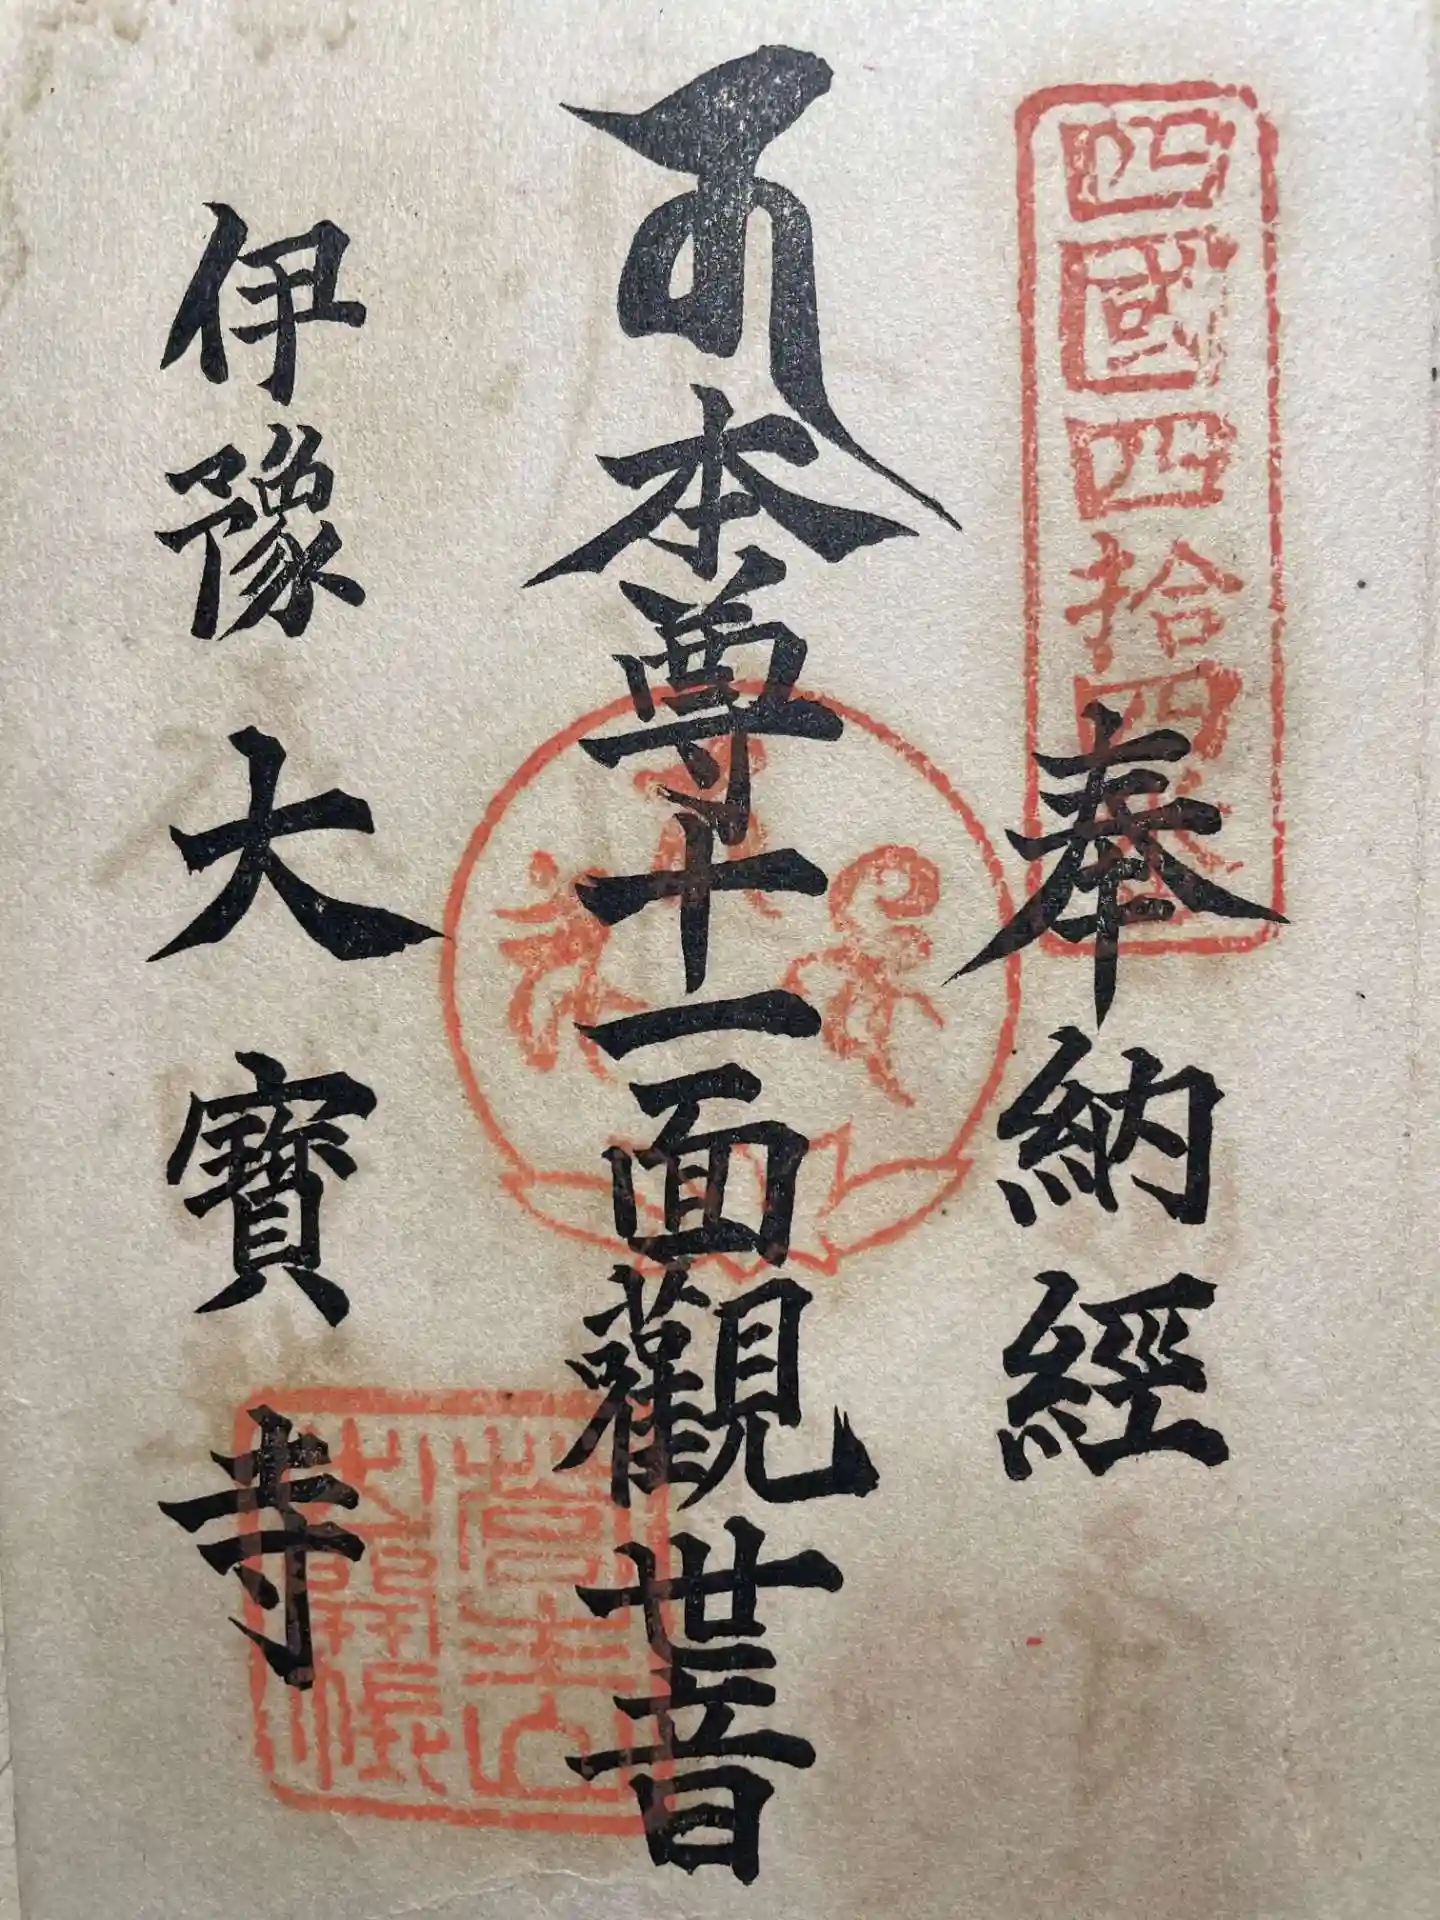 四國四拾四番
奉納經
本尊十一面觀世音
伊豫大寶寺
菅生山